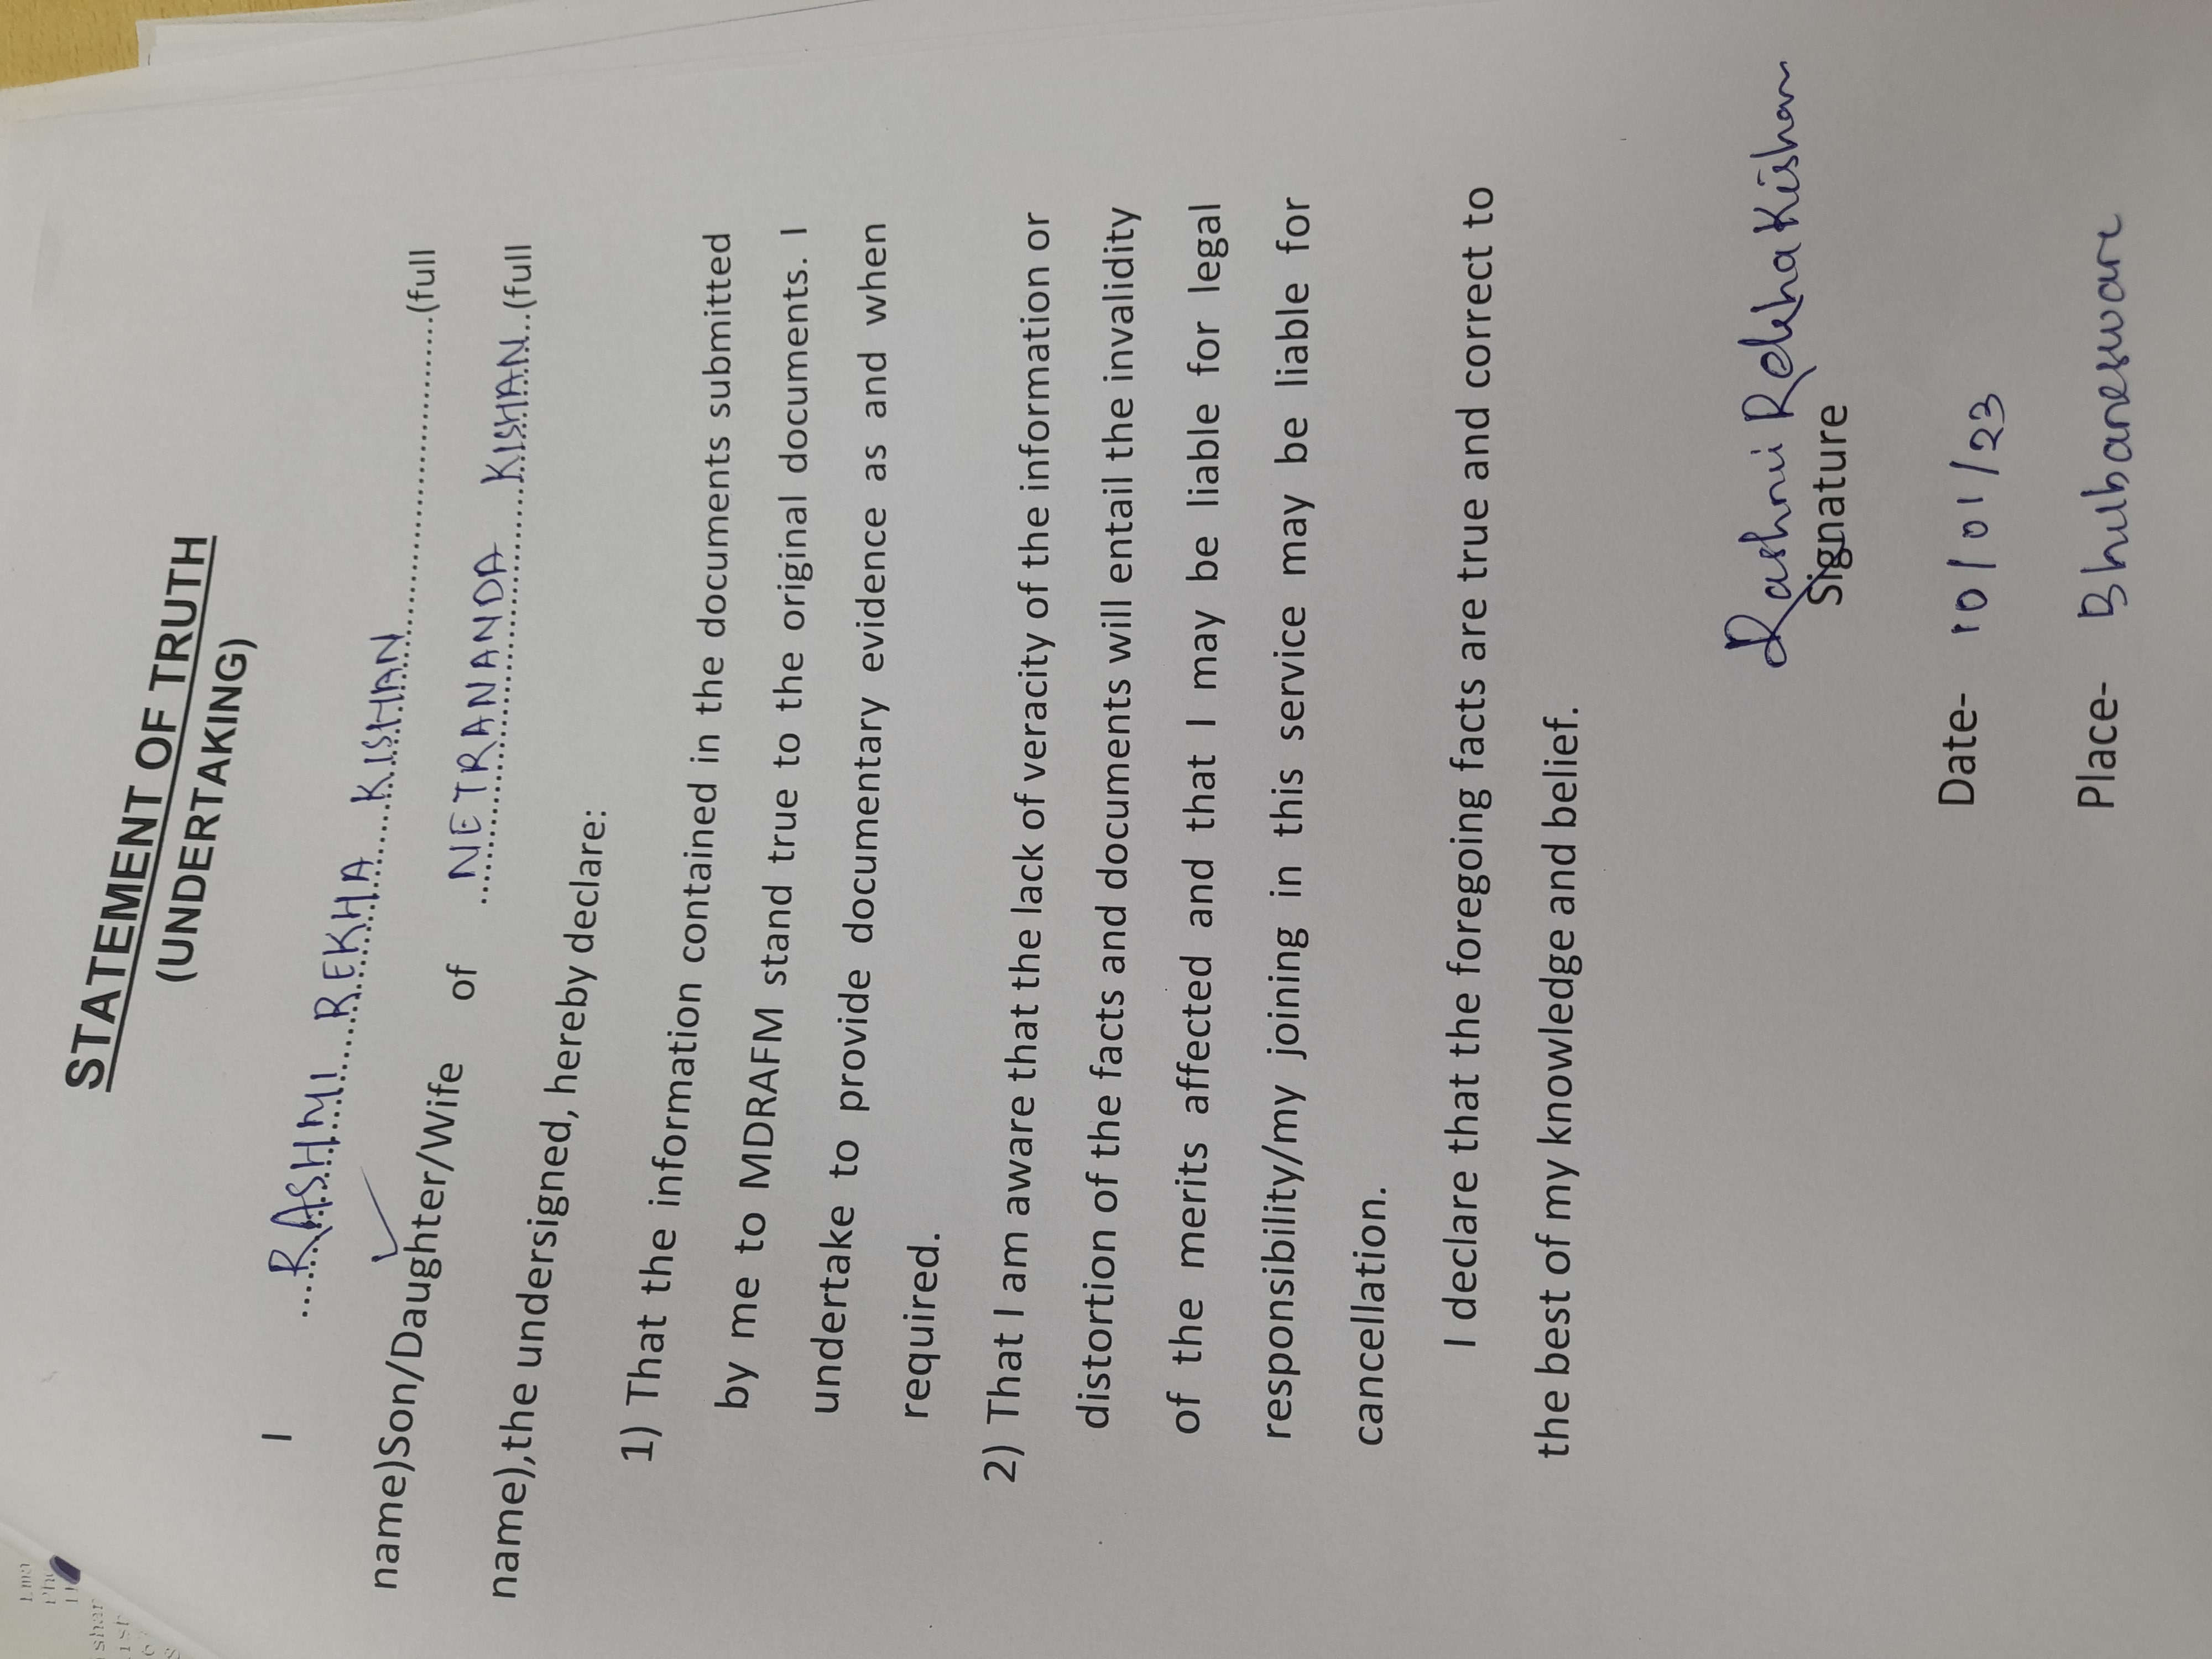 STATEMENT OF TRUTH
(UNDERTAKING)
I ...RASHMI REKHA KISHAN...(full
name)Son/Daughter/Wife of NETRANANDA KISHAN...(full
name),the undersigned, hereby declare:
1) That the information contained in the documents submitted
by me to MDRAFM stand true to the original documents. I
undertake to provide documentary evidence as and when
required.
2) That I am aware that the lack of veracity of the information or
distortion of the facts and documents will entail the invalidity
of the merits affected and that I may be liable for legal
responsibility/my joining in this service may be liable for
cancellation.
I declare that the foregoing facts are true and correct to
the best of my knowledge and belief.
Rashmi Rekha Kishan
Signature
Date- 10/01/23
Place- Bhubaneswar